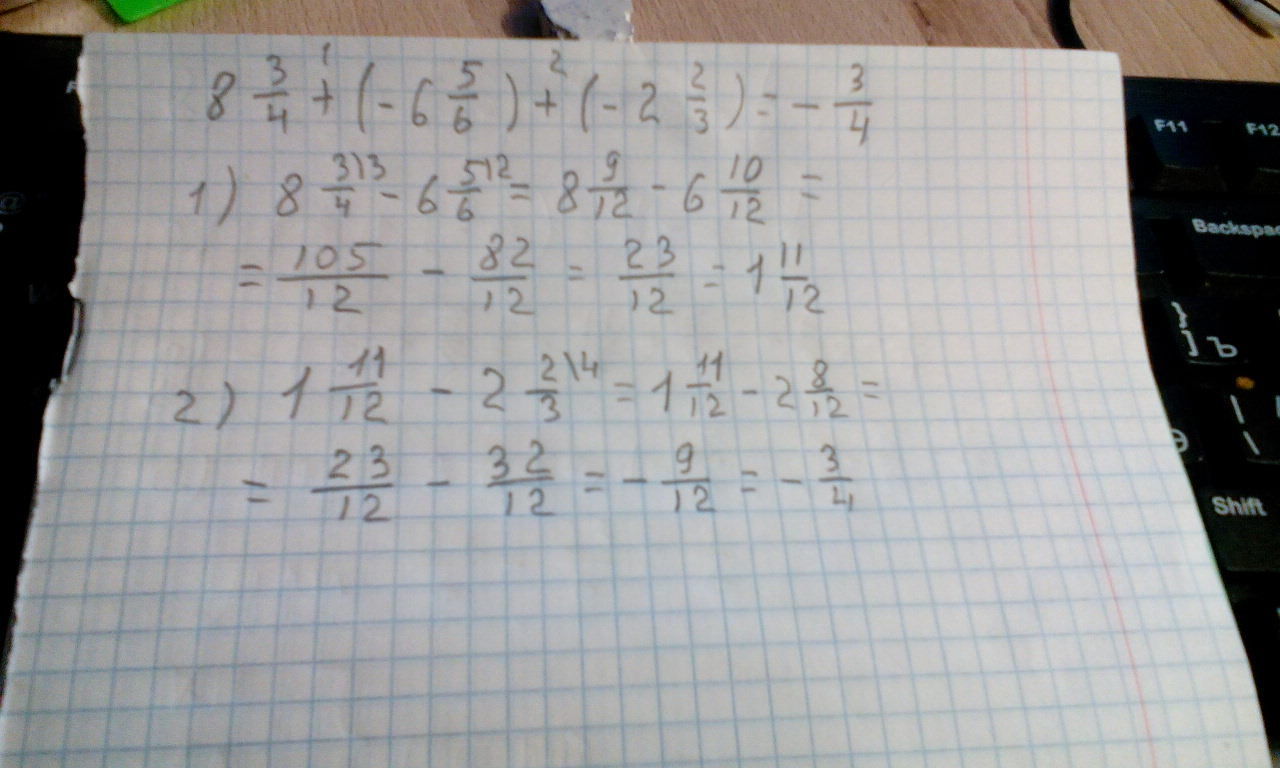 8 3/4 +¹ (- 6 5/6) +² (- 2 2/3) = - 3/4
1) 8 3\3/4 - 6 5\2/6 = 8 9/12 - 6 10/12 =
= 105/12 - 82/12 = 23/12 = 1 11/12
2) 1 11/12 - 2 2\4/3 = 1 11/12 - 2 8/12 =
= 23/12 - 32/12 = - 9/12 = - 3/4
F11 F12
Backspa
}
] Ъ
|
\
Shift